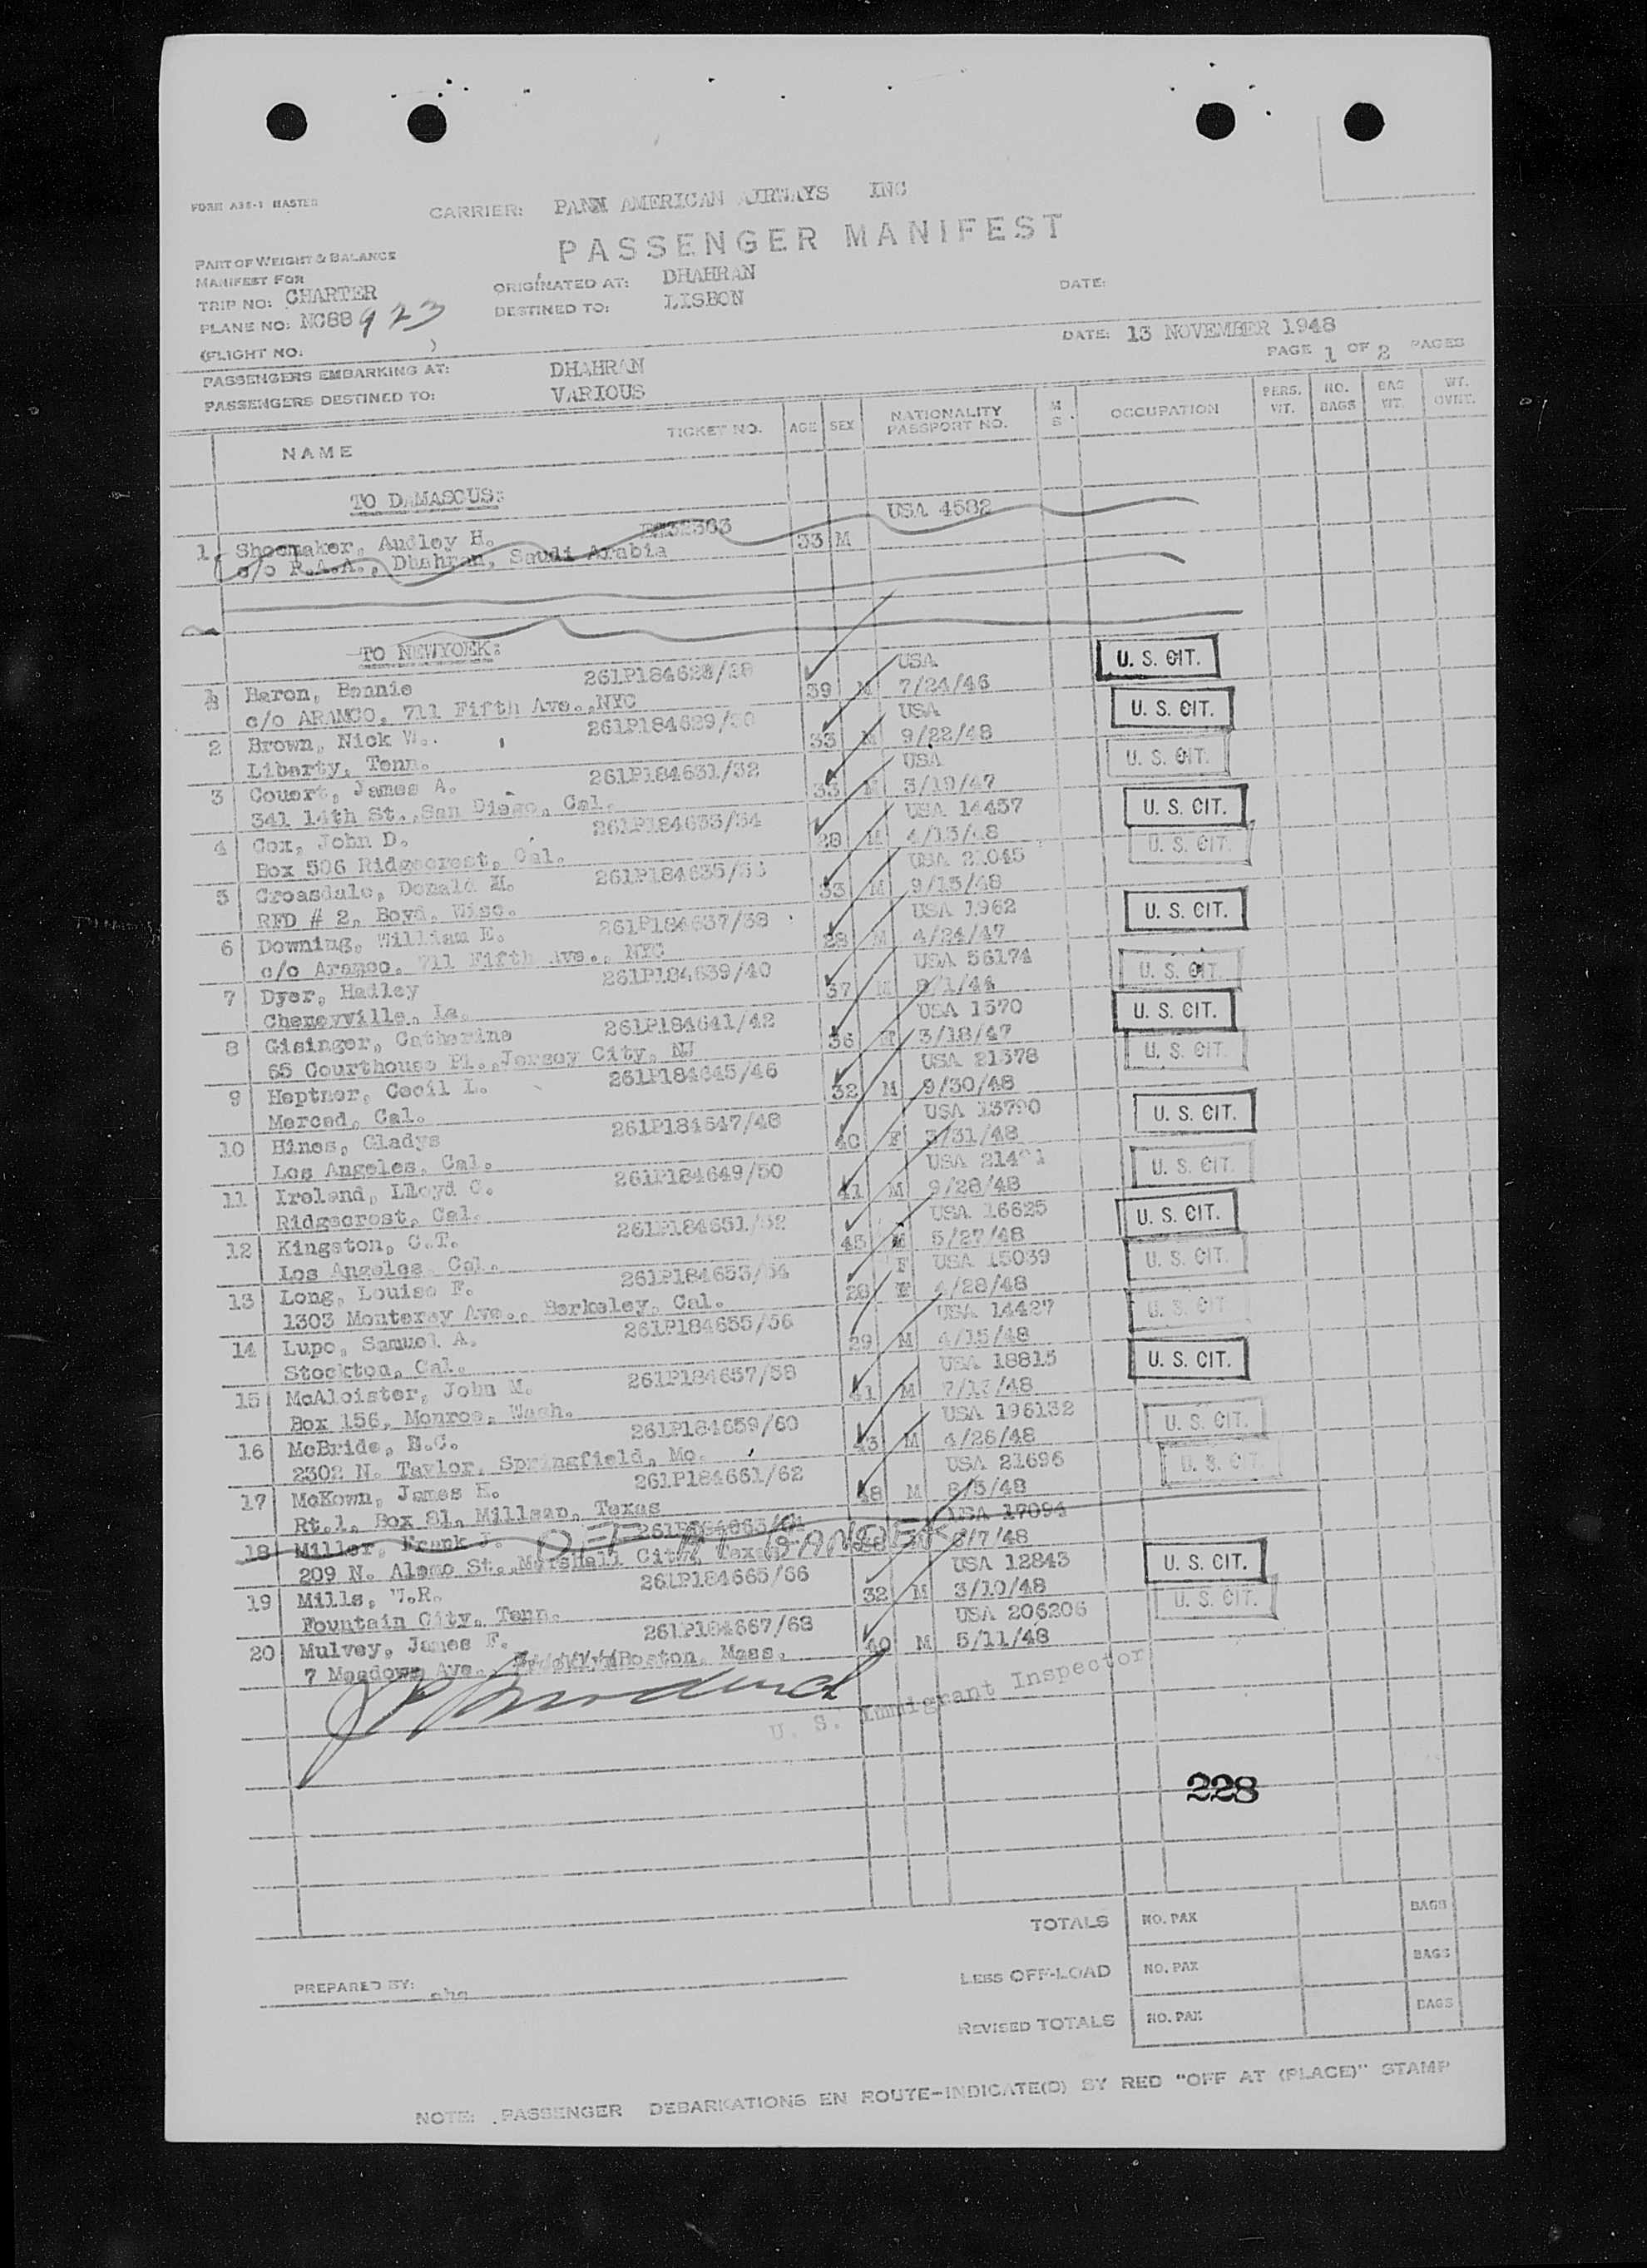 FORM A38-1 MASTER
CARRIER: PANN AMERICAN AIRWAYS INC
PASSENGER MANIFEST
PART OF WEIGHT & BALANCE
MANIFEST FOR
TRIP NO: CHARTER
PLANE NO: NC88923
(FLIGHT NO: )
ORIGINATED AT: DHAHRAN
DESTINED TO: LISBON
DATE:
DATE: 13 NOVEMBER 1948
PAGE 1 OF 2 PAGES
PASSENGERS EMBARKING AT: DHAHRAN
PASSENGERS DESTINED TO: VARIOUS
NAME TICKET NO. AGE SEX NATIONALITY PASSPORT NO. M S. OCCUPATION PERS. WT. NO. BAGS BAG WT. WT. OVNT.
TO DAMASCUS:
1 Shoemaker, Audley H. 33 M USA 4582
c/o R.A.A., Dhahran, Saudi Arabia
TO NEWYORK:
Baron, Bennie 39 M USA U. S. CIT.
c/o ARAMCO, 711 Fifth Ave.,NYC 7/24/46
2 Brown, Nick W. 33 M USA U. S. CIT.
Liberty, Tenn. 9/22/48
3 Couert, James A. 261P184631/32 33 M USA U. S. CIT.
341 14th St.,San Diego, Cal. 3/19/47
4 Cox, John D. 28 M USA 14457 U. S. CIT.
Box 506 Ridgecrest, Cal. 4/13/48
5 Croasdale, Donald H. 33 M USA 21045 U. S. CIT.
RFD # 2, Boyd, Wisc. 9/13/48
6 Downing, William E. 261P184637/38 28 M USA 1962 U. S. CIT.
c/o Aramco, 711 Fifth Ave., NYC 4/24/47
7 Dyer, Hadley 261P184639/40 37 M USA 56174 U. S. CIT.
Cheneyville, La. 8/1/44
8 Gisinger, Catherine 261P184641/42 36 F USA 1570 U. S. CIT.
65 Courthouse Pl.,Jersey City, NJ 3/18/47
9 Heptner, Cecil L. 261P184645/46 32 M USA 21378 U. S. CIT.
Merced, Cal. 9/30/48
10 Hines, Gladys 261P184647/48 40 F USA 13790 U. S. CIT.
Los Angeles, Cal. 3/31/48
11 Ireland, Lloyd C. 261P184649/50 41 M USA U. S. CIT.
Ridgecrest, Cal. 9/28/48
12 Kingston, C.T. 261P184651/52 45 M USA 16625 U. S. CIT.
Los Angeles, Cal. 5/27/48
13 Long, Louise F. 261P184653/54 28 F USA 15039 U. S. CIT.
1303 Monterey Ave., Berkeley, Cal. 4/28/48
14 Lupo, Samuel A. 261P184655/56 29 M USA 14427 U. S. CIT.
Stockton, Cal. 4/15/48
15 McAloister, John M. 261P184657/58 41 M USA 18815 U. S. CIT.
Box 156, Monroe, Wash. 7/13/48
16 McBride, E.C. 261P184659/60 43 M USA 196132 U. S. CIT.
2302 N. Taylor, Springfield, Mo. 4/26/48
17 McKown, James H. 261P184661/62 48 M USA 21696 U. S. CIT.
Rt.1, Box 81, Millsap, Texas 8/5/48
18 Miller, Frank J. USA 17094
OFF AT GANDER
209 N. Alamo St.,Marshall City, Texas 6/7/48
19 Mills, W.R. 261P184665/66 32 M USA 12843 U. S. CIT.
Fountain City, Tenn. 3/10/48
20 Mulvey, James F. 261P184667/68 40 M USA 206206 U. S. CIT.
7 Meadows Ave. Boston, Mass. 5/11/48
U. S. Immigrant Inspector
228
TOTALS NO. PAX BAGS
LESS OFF-LOAD NO. PAX BAGS
REVISED TOTALS NO. PAX BAGS
PREPARED BY:
NOTE: PASSENGER DEBARKATIONS EN ROUTE-INDICATE(D) BY RED "OFF AT (PLACE)" STAMP